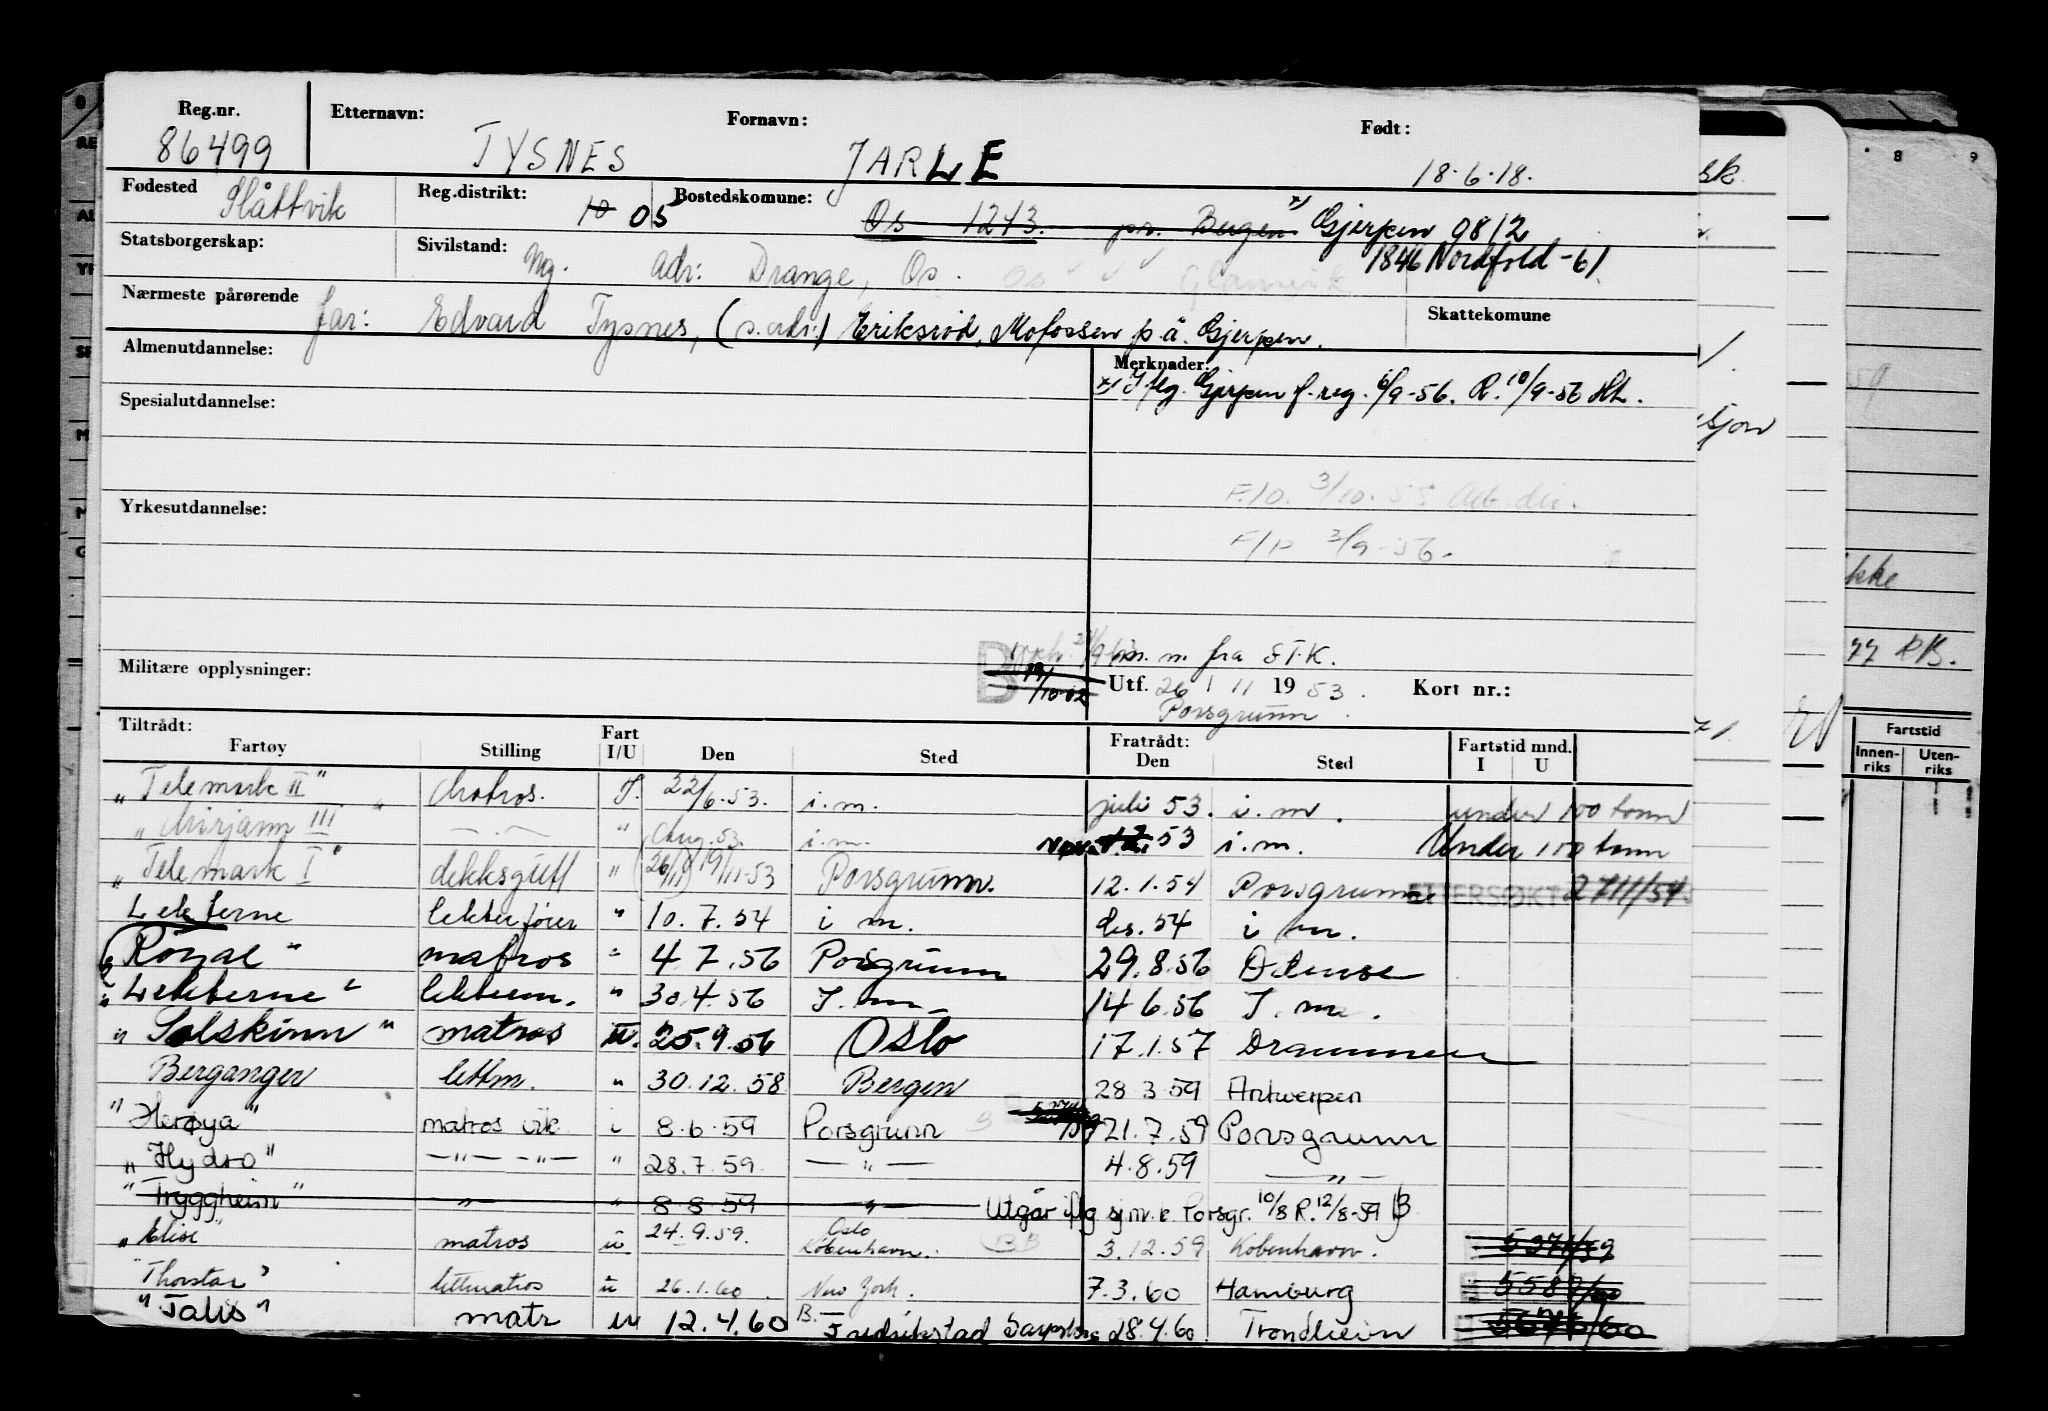 Reg.nr. Etternavn: Fornavn: Født:
86499 TYSNES JARLE 18.6.18.
Fødested Slåttvik Reg.distrikt: 10 05 Bostedskomune: Os 1243. pr. Bergen x) Gjerpen 0812
Statsborgerskap: Sivilstand: Ug. adr: Drange, Os. Os Glamvik 1846 Nordfold -61
Nærmeste pårørende far: Edvard Tysnes, (s. adr.) Eriksrød, Mofossen p.å. Gjerpen. Skattekomune
Almenutdannelse: Merknader:
x) Iflg. Gjerpen f.reg. 6/9-56. R. 10/9-56 HL.
Spesialutdannelse:
F.10. 3/10-55 Arb.dir.
Yrkesutdannelse:
F/P 3/9-56.
m. m. fra S.T.K.
Militære opplysninger: /10-62 Utf. 26 / 11 1953. Kort nr.:
Porsgrunn.
Tiltrådt: Fratrådt:
Fartøy Stilling Fart I/U Den Sted Den Sted Fartstid mnd. I U
„Telemark II" Matros. I. 22/6.53. i.m. juli 53. i.m. under 100 tonn
„Mirjam III" —.— " Aug. 53. i.m. Nov. 53 i.m. Under 100 tonn
„Telemark I" dekksgutt " (26/11) 19/11-53 Porsgrunn. 12.1.54 Porsgrunn ETTERSØKT 2711/54
Lekterne lekterfører " 10.7.54 i m. des. 54 i m.
"Royal" matros " 4.7.56 Porsgrunn 29.8.56 Odense
„Lekterne" lekterm. " 30.4.56 I.m 14.6.56 I.m.
„Solskinn" matros U. 25.9.56 Oslo 17.1.57 Drammen
Berganger lettm. " 30.12.58 Bergen 28.3.59 Antwerpen
"Herøya" matros vik i 8.6.59 Porsgrunn 21.7.59 Porsgrunn
„Hydro" —"— —"— " 28.7.59. —"— 4.8.59 —"—
"Tryggheim" " " 8.8.59 " Utgår iflg sj.m.k. Porsgr. 10/8 R. 12/8-59 B
„Elise" matros u. 24.9.59. Oslo København. BB 3.12.59 København. 5371/59
"Thorstar" lettmatros u 26.1.60. New York. 7.3.60 Hamburg 5589/60
"Talis" matr u 12.4.60 B. Fredrikstad Sarpsborg 28.4.60. Trondheim
sk.
sjon
kke
77 RB.
8 9
Fartstid
Innenriks Utenriks